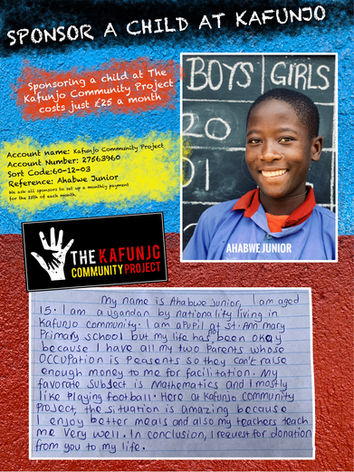 SPONSOR A CHILD AT KAFUNJO
Sponsoring a child at The
Kafunjo Community Project
costs just £25 a month
BOYS GIRLS
20
01
Account name: Kafunjo Community Project
Account Number: 27563960
Sort Code:60-12-03
Reference: Ahabwe Junior
We ask all sponsors to set up a monthly payment
for the 28th of each month.
AHABWE JUNIOR
THE KAFUNJO
COMMUNITY PROJECT
My name is Ahabwe Junior, I am aged
15. I am a ugandan by nationality living in
Kafunjo community. I am a pupil at St. Ann mary
Primary school but my life has not been okay
because I have all my two parents whose
occupation is peasents so they can't raise
enough money to me for facilitation. My
favorate subject is Mathematics and I mostly
like playing football. Here at Kafunjo community
Project, the situation is amazing because
I enjoy better meals and also my teachers teach
me very well. In conclusion, I request for donation
from you to my life.